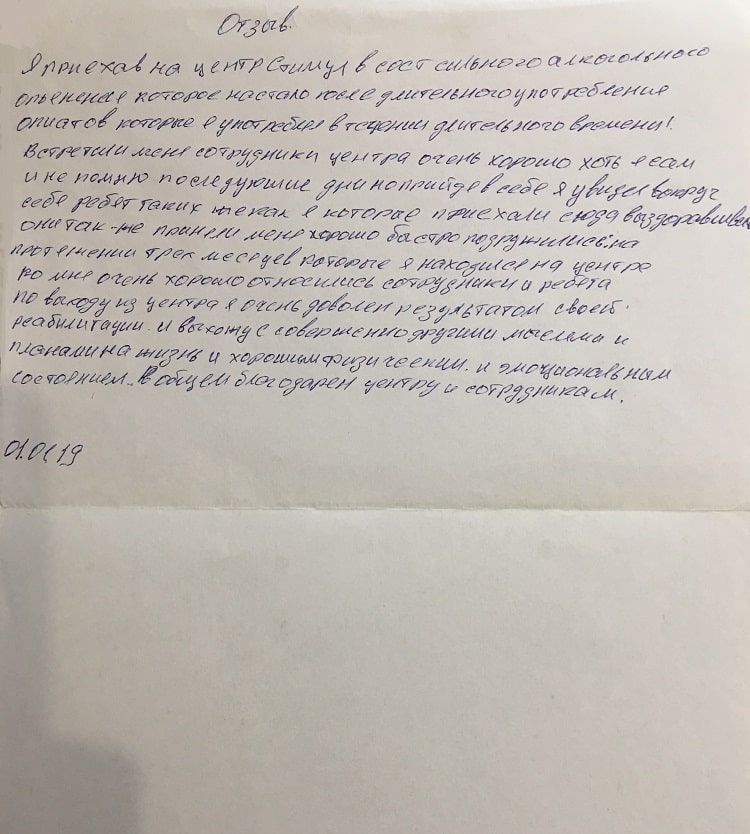 Отзыв.
Я приехав на центр Стимул в сост сильного алкогольного
опьенения которое настало после длительного употребления
опиатов которые я употреблял в течении длительного времени!
Встретили меня сотрудники центра очень хорошо хоть я сам
и не помню последующие дни но прийдя в себя я увидел вокруг
себя ребят таких же как я которые приехали сюда выздоравливать
они так-же приняли меня хорошо быстро подружились. на
протяжении трех месяцев которые я находился на центре
ко мне очень хорошо относились сотрудники и ребята
по выходу из центра я очень доволен результатом своей
реабилитации. и выхожу с совершенно другими мыслями и
планами на жизнь и хорошим физическим. и эмоциональным
состоянием.. В общем благодарен центру и сотрудникам.